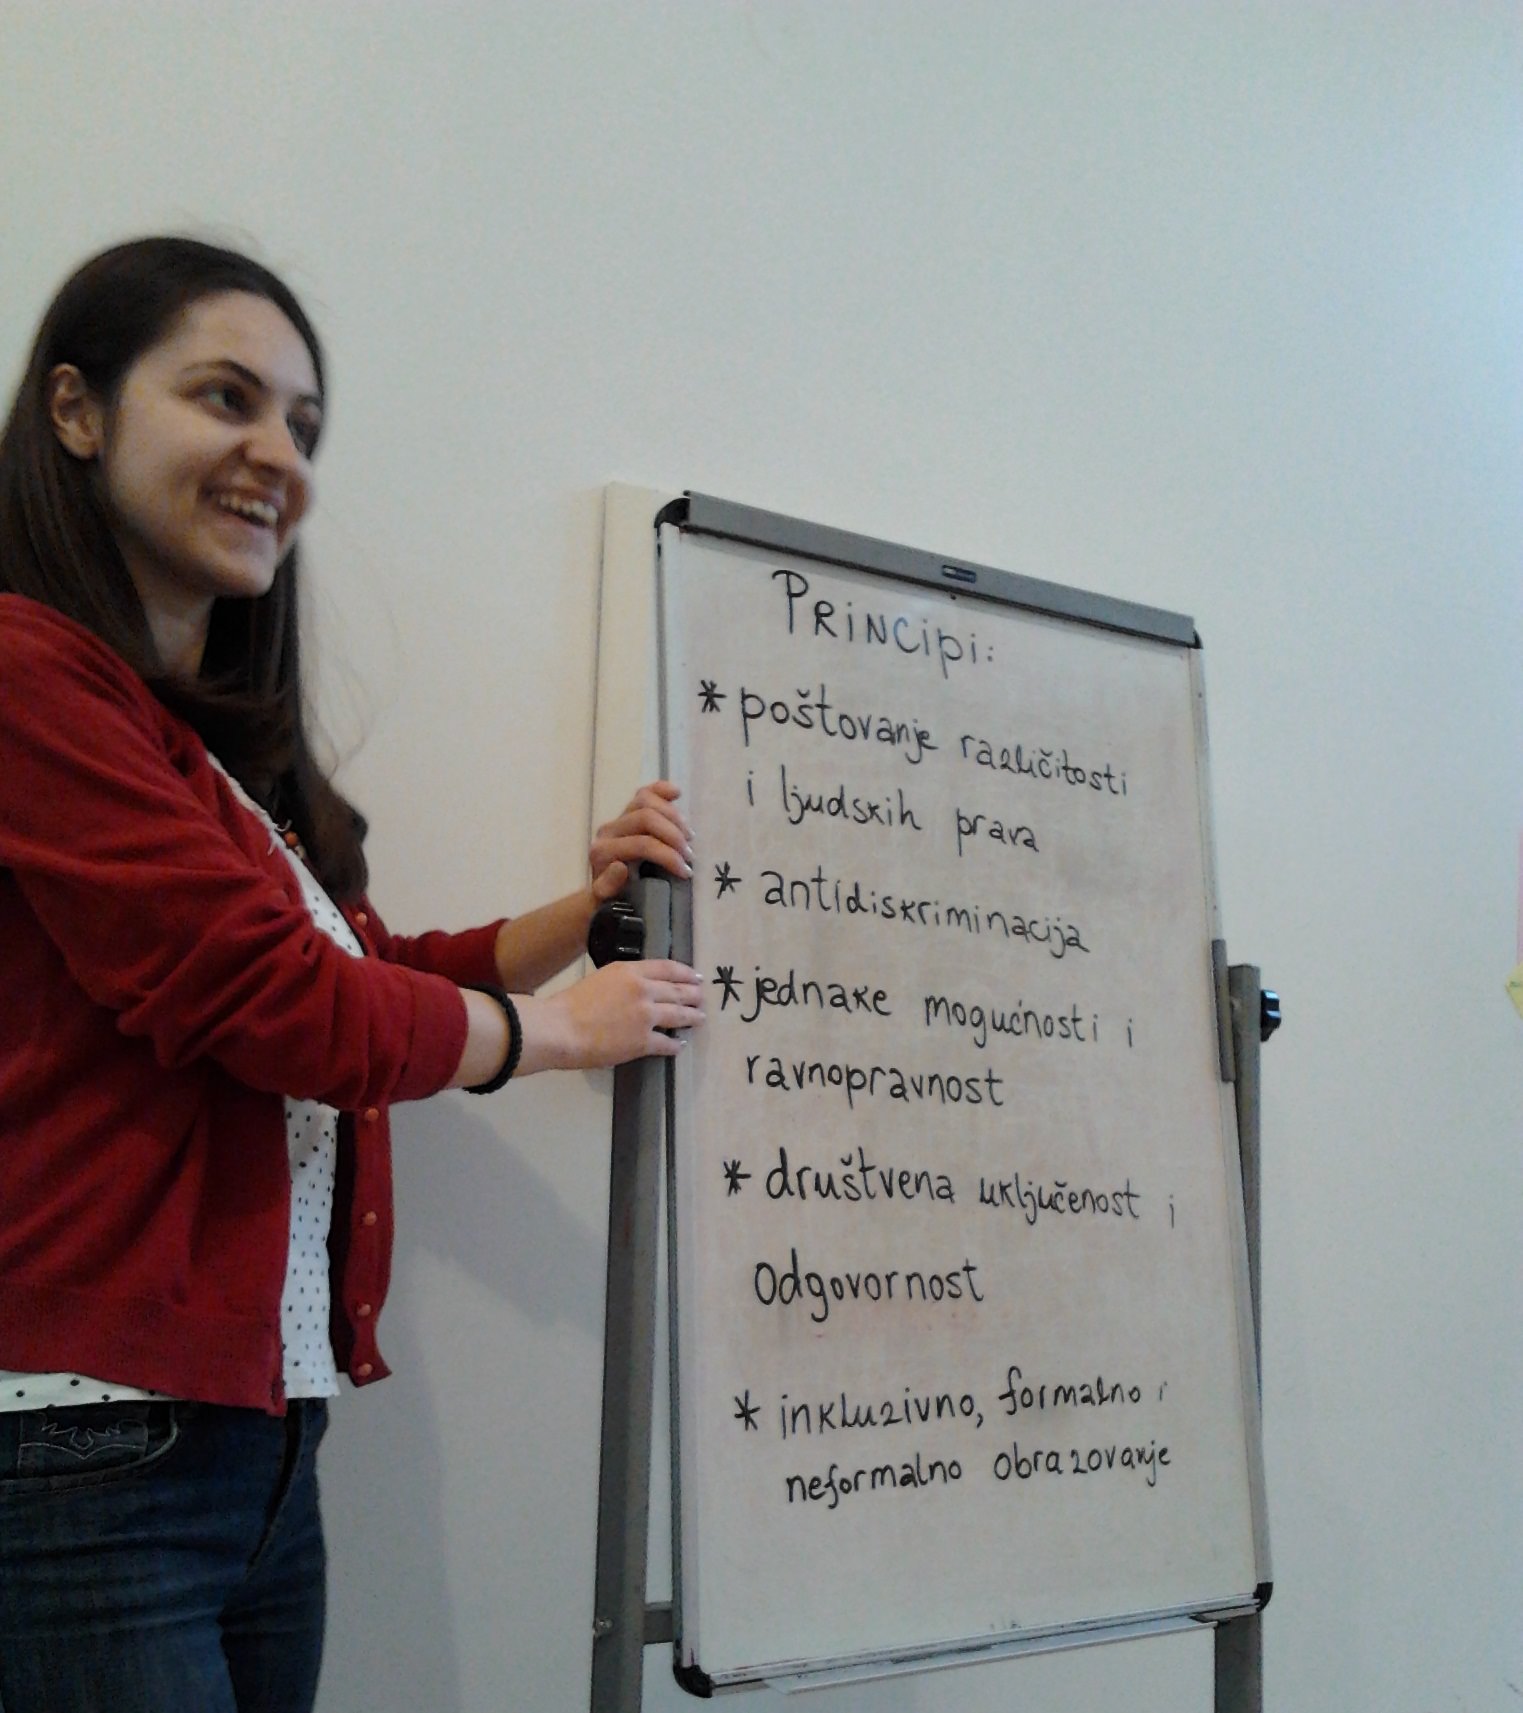 PRiNCipi:
* poštovanje različitosti
i ljudskih prava
* antidiskriminacija
* jednake mogućnosti i
ravnopravnost
* društvena uključenost i
Odgovornost
* inkluzivno, formalno i
neformalno obrazovanje